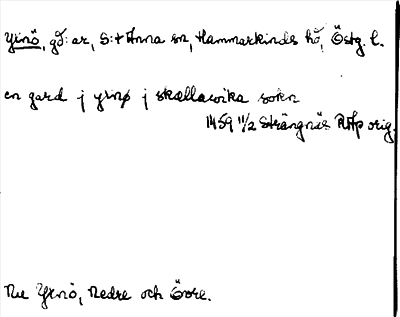 Yxnö, gd:ar, S:t Anna sn, Hammarkinds hd, Östg. l.
en gard j yxnø j skællawika sokn
1459 11/2 Strängnäs RAp orig.
Nu Yxnö, Nedre och Övre.